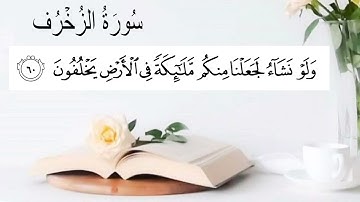 سُورَةُ الزُّخْرُف
وَلَوْ نَشَآءُ لَجَعَلْنَا مِنكُم مَّلَـٰٓئِكَةً فِى ٱلْأَرْضِ يَخْلُفُونَ ٦٠